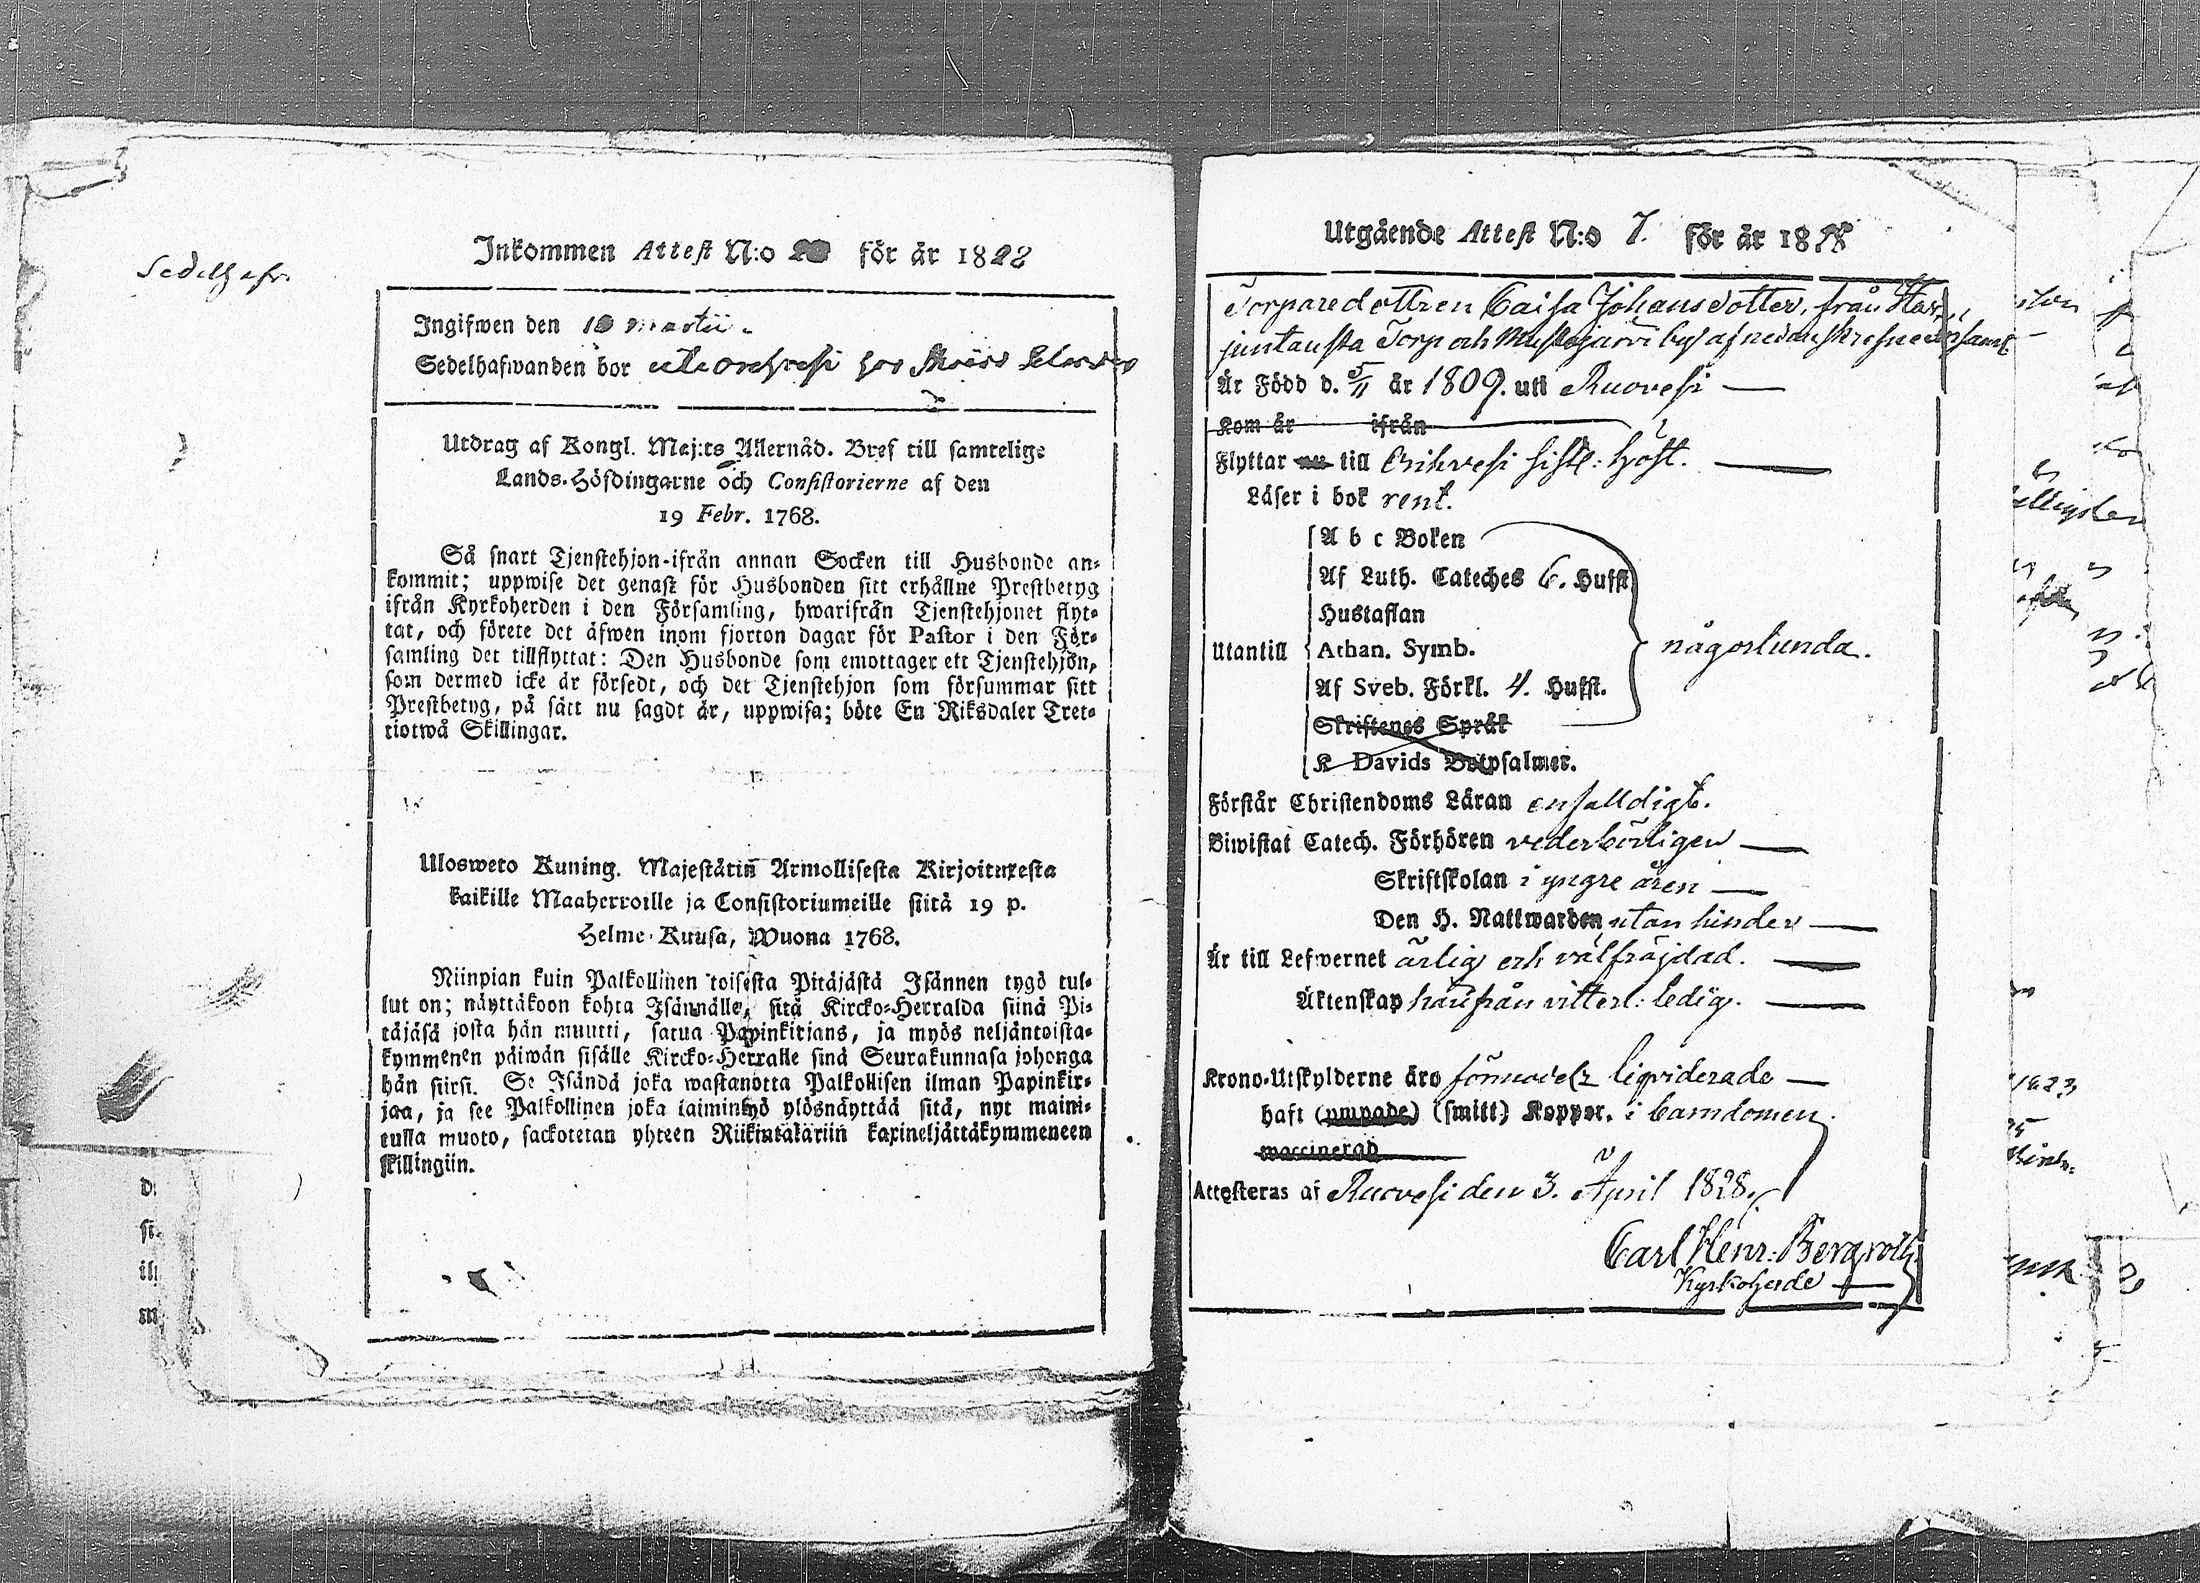 Sedelhafv.
Inkommen Attest N:o för år 1828
Ingifwen den 10 martii.
Sedelhafwanden bor uti Orihvesi hos
Utdrag af Kongl. Maj:ts Allernåd. Bref till samtelige
Lands-Höfdingarne och Consistorierne af den
19 Febr. 1768.
Så snart Tjenstehjon ifrån annan Socken till Husbonde an-
kommit; uppwise det genast för Husbonden sitt erhållne Prestbetyg
ifrån Kyrkoherden i den Församling, hwarifrån Tjenstehjonet flyt-
tat, och förete det äfwen inom fjorton dagar för Pastor i den För-
samling det tillflyttat: Den Husbonde som emottager ett Tjenstehjon,
som dermed icke är försedt, och det Tjenstehjon som försummar sitt
Prestbetyg, på sätt nu sagdt är, uppwisa; böte En Riksdaler Tret-
tiotwå Skillingar.
Ulosweto Kuning. Majestätin Armollisesta Kirjoituxesta
kaikille Maaherroille ja Consistoriumeille siitä 19 p.
Helme-Kuusa, Wuona 1768.
Niinpian kuin Palkollinen toisesta Pitäjästä Isännen tygö tul-
lut on; näyttäköon kohta Isännälle, sitä Kircko-Herralda siinä Pi-
täjäsä josta hän muutti, satua Papinkirjans, ja myös neljäntoista-
kymmenen päiwän sisälle Kircko-Herralle sinä Seurakunnasa johonga
hän siirsi. Se Isändä joka wastanotta Palkollisen ilman Papinkir-
jaa, ja see Palkollinen joka laiminlyö ylösnäyttää sitä, nyt maini-
tulla muoto, sackotetan yhteen Riikintalariin kaxineljättäkymmeneen
skillingiin.
Utgående Attest N:o 7. för år 1828
Torparedottren Caisa Johansdotter, från Har-
juntausta Torp och Mustajärvi by af nedanskrefne församl.
Är Född d. 5/11 år 1809. uti Ruovesi
Kom år ifrån
Flyttar nu till Orihvesi sistl: höst.
Läser i bok rent.
A b c Boken
Af Luth. Cateches 6. Hufst.
Hustaflan
Utantill Athan. Symb. någorlunda.
Af Sveb. Förkl. 4. Hufst.
Skriftenes Språk
K Davids Botpsalmer.
Förstår Christendoms Läran enfalldigt.
Biwistat Catech. Förhören vederbörligen
Skriftskolan i yngre åren
Den H. Nattwarden utan hinder
Är till Lefwernet ärlig och välfräjdad.
Äktenskap härifrån vitterl: ledig.
Krono-Utskylderne äro förmodel: liqviderade
haft (ympade) (smitt) Koppor. i barndomen.
waccinerad
Attesteras af Ruovesi den 3. April 1828.
Carl Henr: Bergroth
Kyrkoherde